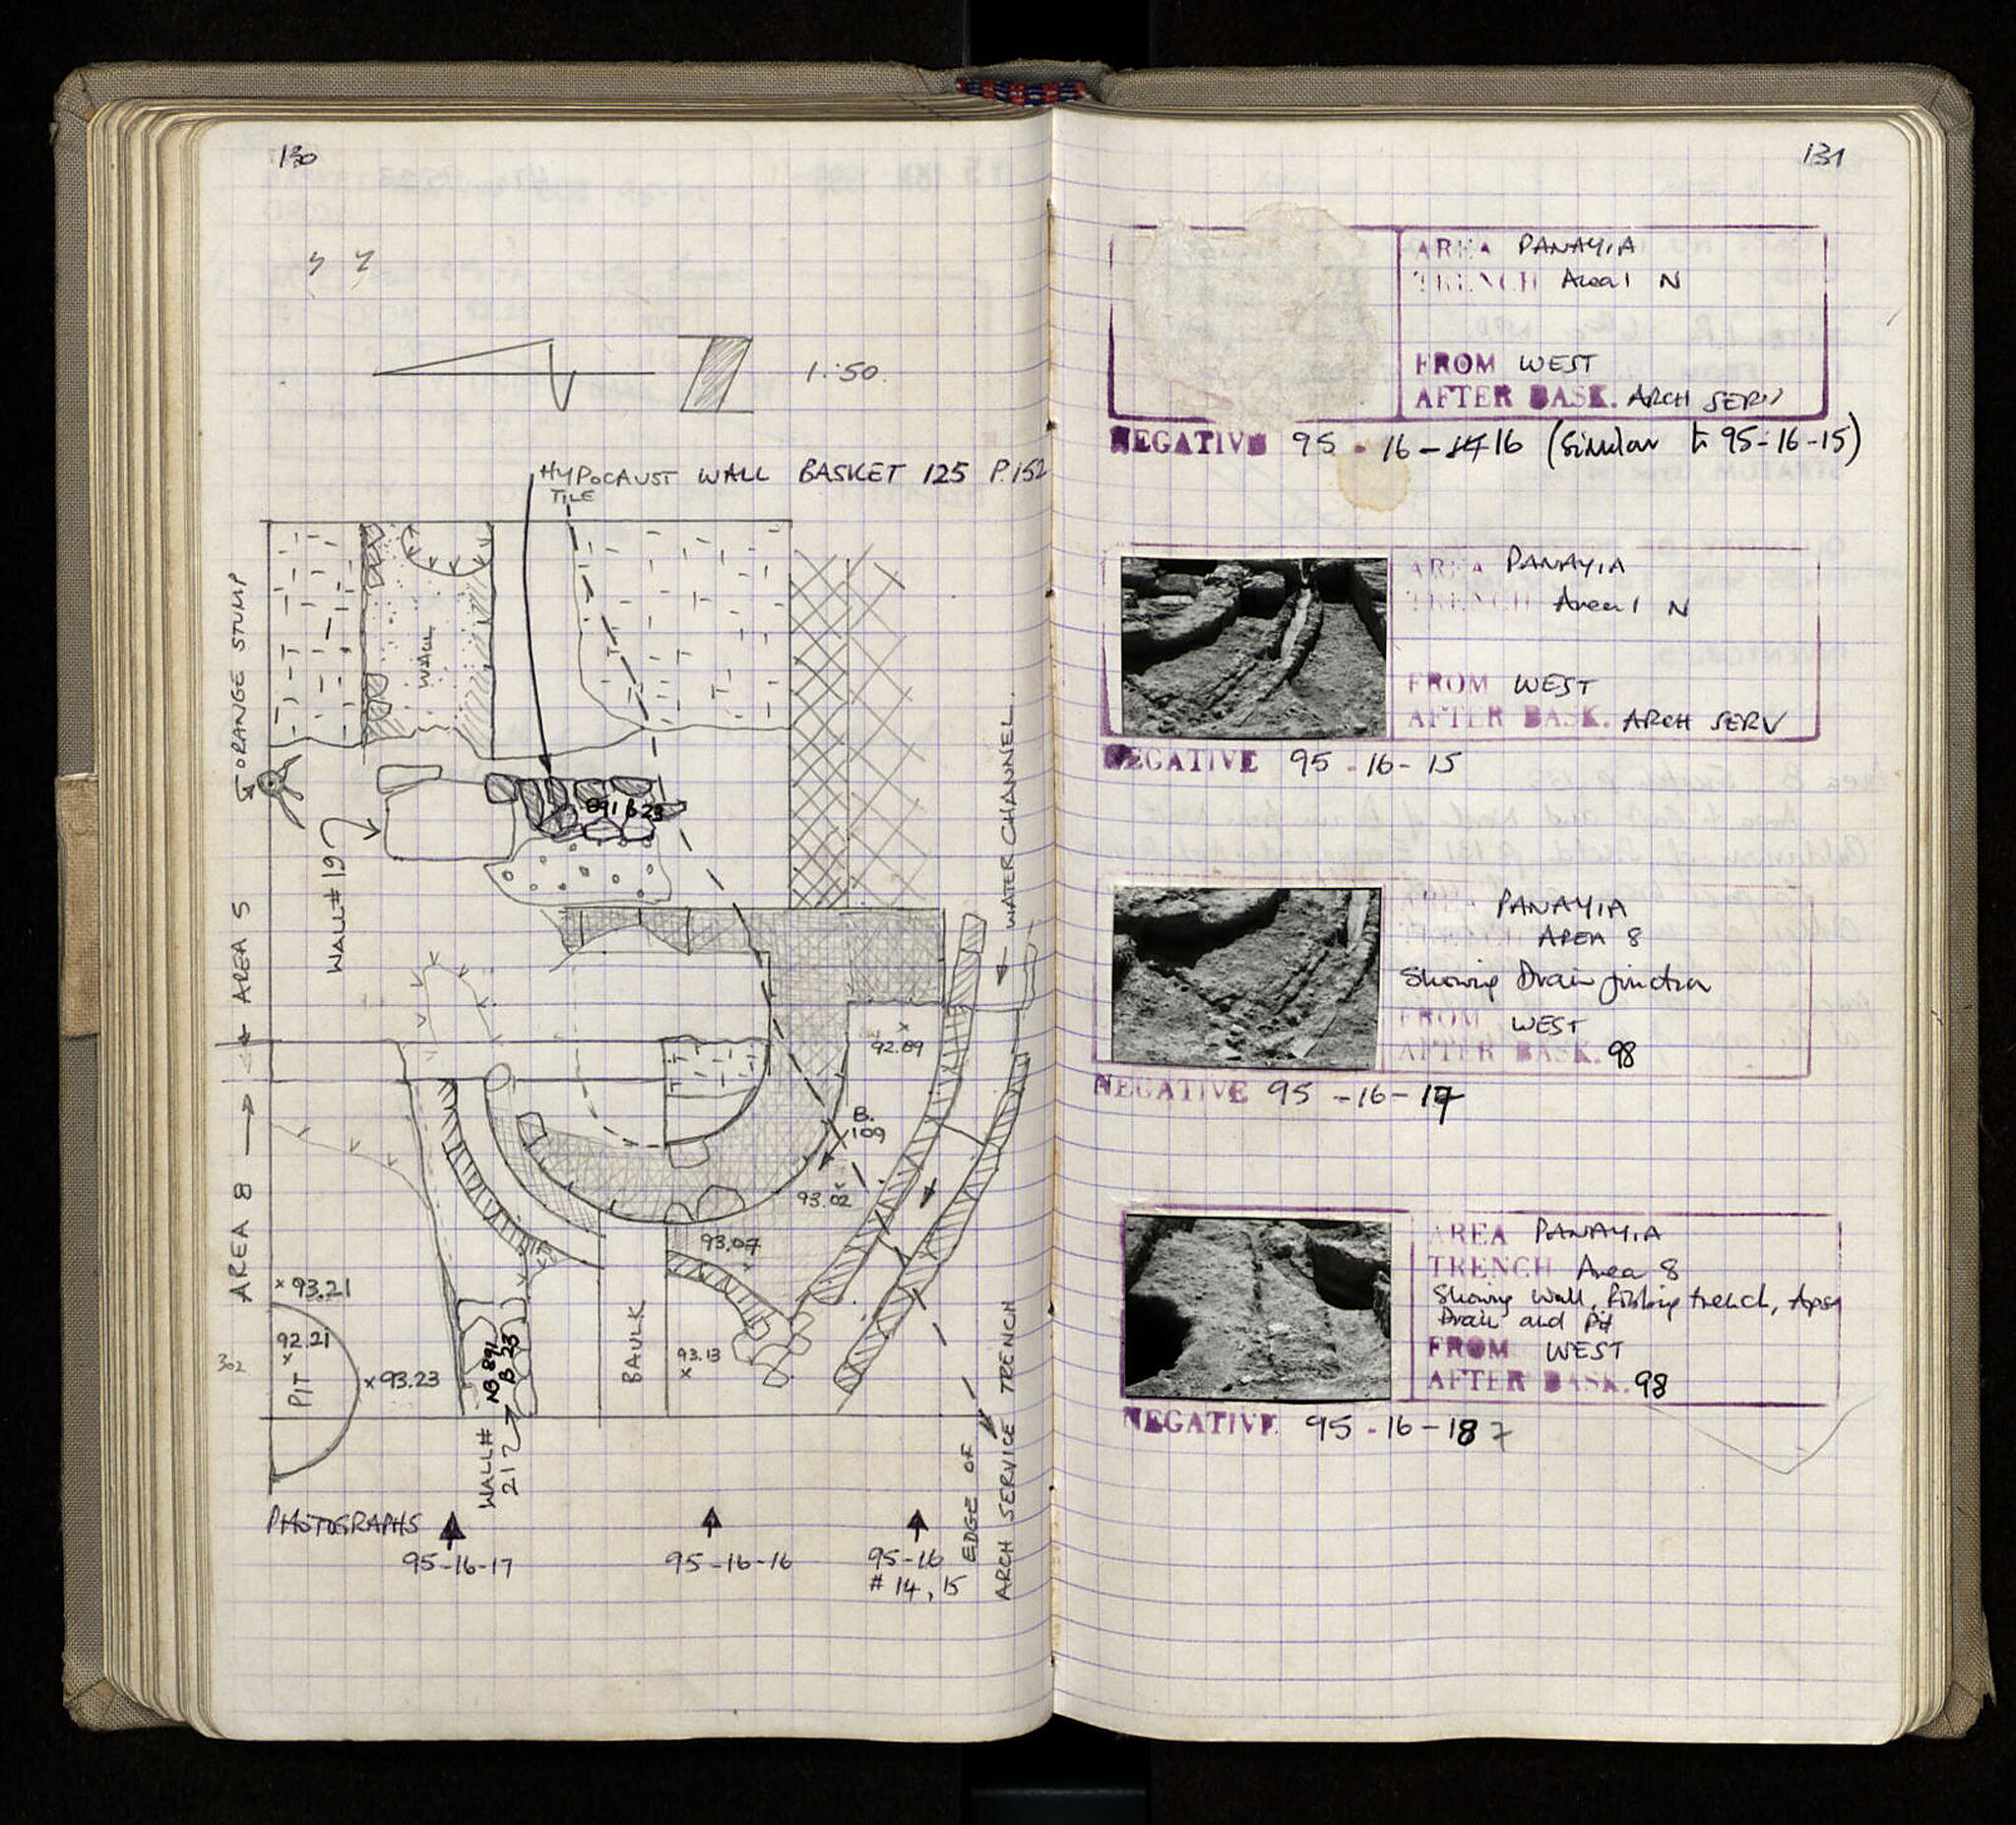 130
1:50.
HYPOCAUST WALL BASKET 125 P.152
TILE
ORANGE STUMP
WALL
WALL # 19
891 B 23
WATER CHANNEL.
AREA 5
AREA 8
92.89
B.
109
93.02
93.07
93.21
92.21
PIT
302
93.23
NB 891
B 23
BAULK
93.13
WALL #
21?
EDGE OF
ARCH SERVICE TRENCH
PHOTOGRAPHS
95-16-17
95-16-16
95-16
# 14, 15
131
AREA PANAYIA
TRENCH Area 1 N
FROM WEST
AFTER BASK. ARCH SERV
NEGATIVE 95 - 16 - 16 (Similar to 95-16-15)
AREA PANAYIA
TRENCH Area 1 N
FROM WEST
AFTER BASK. ARCH SERV
NEGATIVE 95 - 16 - 15
AREA PANAYIA
TRENCH AREA 8
Showing Drain junction
FROM WEST
AFTER BASK. 98
NEGATIVE 95 - 16 - 17
AREA PANAYIA
TRENCH Area 8
Showing Wall, Robbing trench, Apse
Drain and Pit
FROM WEST
AFTER BASK. 98
NEGATIVE 95 - 16 - 18 7